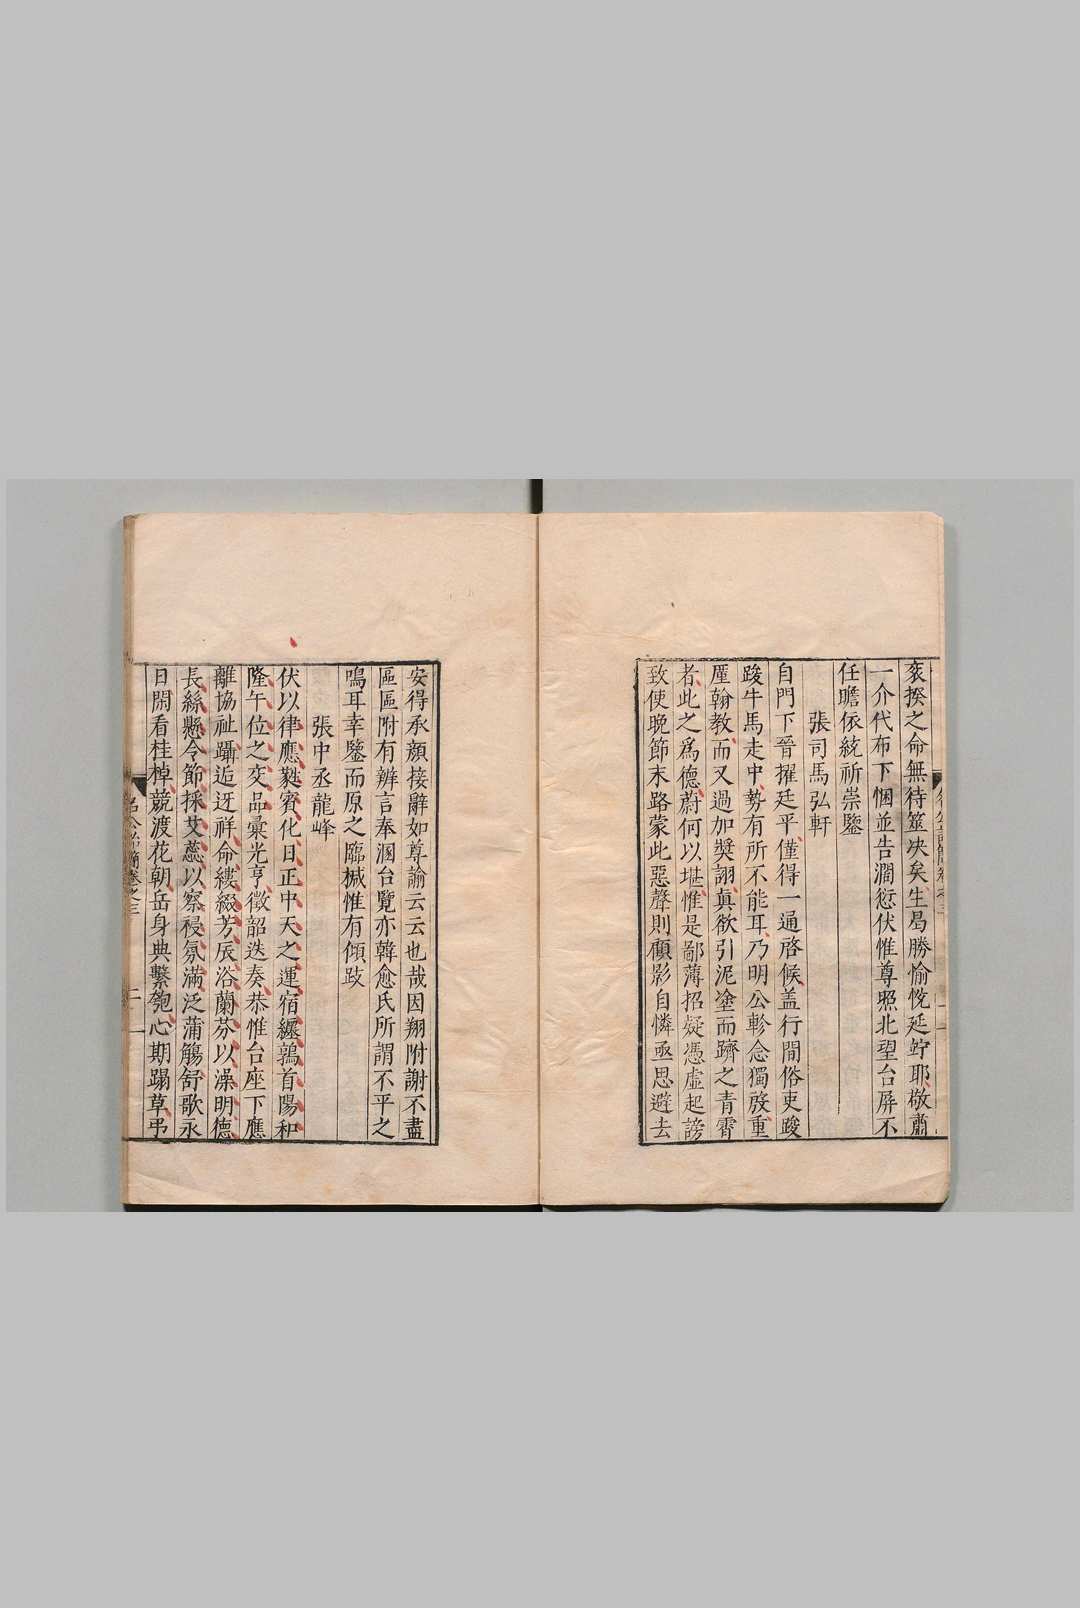 袞揆之命無待筮决矣生曷勝愉悅延竚耶敬肅
一介代布下悃並告澗愆伏惟尊照北望台屏不
任瞻依統祈崇鑒
張司馬弘軒
自門下晉擢廷平僅得一通啓候盖行間俗吏踆
踆牛馬走中勢有所不能耳乃明公軫念獨啓重
厪翰教而又過加奬詡真欲引泥塗而躋之青霄
者此之為德蔚何以堪惟是鄙薄招疑憑虛起謗
致使晚節末路蒙此惡聲則顧影自憐亟思避去
安得承顏接辭如尊諭云云也哉因翔附謝不盡
區區附有辨言奉溷台覽亦韓愈氏所謂不平之
鳴耳幸鑒而原之臨椷惟有傾跂
張中丞龍峰
伏以律應蕤賓化日正中天之運宿纏鶉首陽和
隆午位之交品彙光亨徵韶迭奏恭惟台座下應
離協祉躡近迓祥命縷綴芳辰浴蘭芬以澡明德
長絲懸令節採艾蕊以察祲氛滿泛蒲觴舒歌永
日閑看桂棹競渡花朝岳身典繫匏心期蹋草弔
名公貽簡卷之三